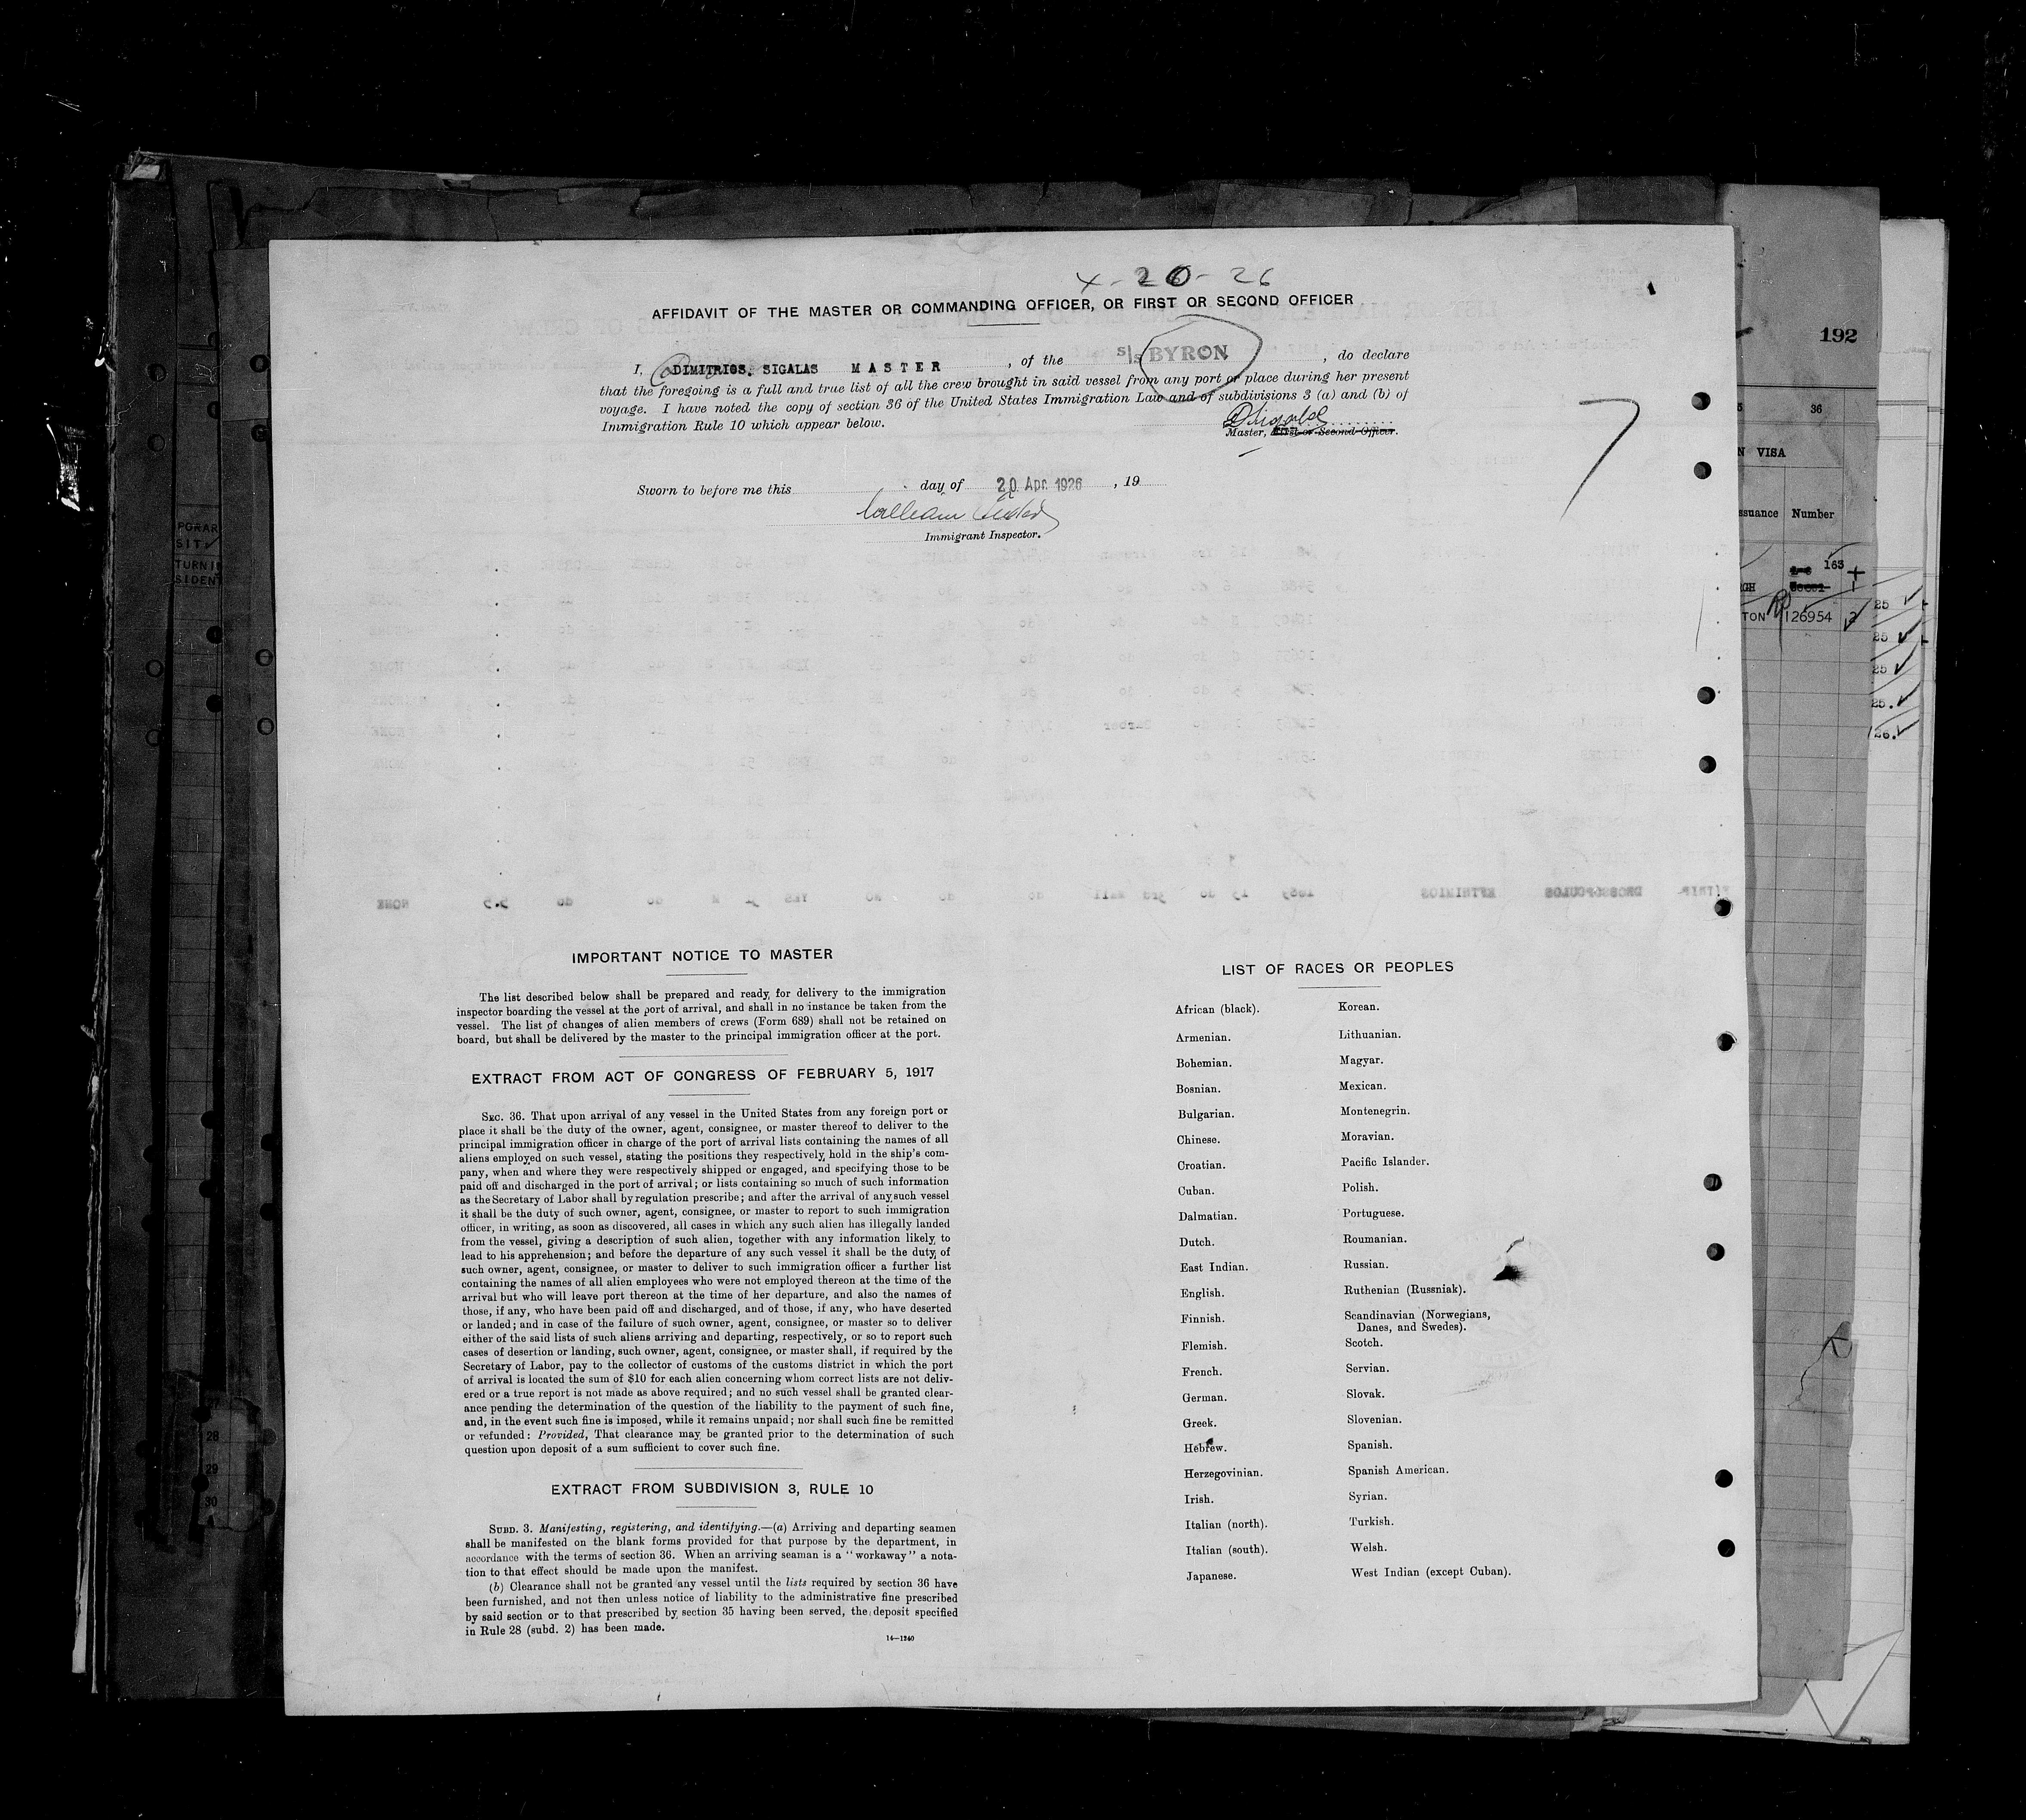 4-20-26
AFFIDAVIT OF THE MASTER OR COMMANDING OFFICER, OR FIRST OR SECOND OFFICER
I, DIMITRIOS. SIGALAS MASTER, of the S/S BYRON, do declare
that the foregoing is a full and true list of all the crew brought in said vessel from any port or place during her present
voyage. I have noted the copy of section 36 of the United States Immigration Law and of subdivisions 3 (a) and (b) of
Immigration Rule 10 which appear below.
DSigalas
Master, First or Second Officer.
7
Sworn to before me this day of 20 Apr. 1926, 19
William
Immigrant Inspector.
IMPORTANT NOTICE TO MASTER
The list described below shall be prepared and ready for delivery to the immigration
inspector boarding the vessel at the port of arrival, and shall in no instance be taken from the
vessel. The list of changes of alien members of crews (Form 689) shall not be retained on
board, but shall be delivered by the master to the principal immigration officer at the port.
EXTRACT FROM ACT OF CONGRESS OF FEBRUARY 5, 1917
SEC. 36. That upon arrival of any vessel in the United States from any foreign port or
place it shall be the duty of the owner, agent, consignee, or master thereof to deliver to the
principal immigration officer in charge of the port of arrival lists containing the names of all
aliens employed on such vessel, stating the positions they respectively hold in the ship's com-
pany, when and where they were respectively shipped or engaged, and specifying those to be
paid off and discharged in the port of arrival; or lists containing so much of such information
as the Secretary of Labor shall by regulation prescribe; and after the arrival of any such vessel
it shall be the duty of such owner, agent, consignee, or master to report to such immigration
officer, in writing, as soon as discovered, all cases in which any such alien has illegally landed
from the vessel, giving a description of such alien, together with any information likely to
lead to his apprehension; and before the departure of any such vessel it shall be the duty of
such owner, agent, consignee, or master to deliver to such immigration officer a further list
containing the names of all alien employees who were not employed thereon at the time of the
arrival but who will leave port thereon at the time of her departure, and also the names of
those, if any, who have been paid off and discharged, and of those, if any, who have deserted
or landed; and in case of the failure of such owner, agent, consignee, or master so to deliver
either of the said lists of such aliens arriving and departing, respectively, or so to report such
cases of desertion or landing, such owner, agent, consignee, or master shall, if required by the
Secretary of Labor, pay to the collector of customs of the customs district in which the port
of arrival is located the sum of $10 for each alien concerning whom correct lists are not deliv-
ered or a true report is not made as above required; and no such vessel shall be granted clear-
ance pending the determination of the question of the liability to the payment of such fine,
and, in the event such fine is imposed, while it remains unpaid; nor shall such fine be remitted
or refunded: Provided, That clearance may be granted prior to the determination of such
question upon deposit of a sum sufficient to cover such fine.
EXTRACT FROM SUBDIVISION 3, RULE 10
SUBD. 3. Manifesting, registering, and identifying.—(a) Arriving and departing seamen
shall be manifested on the blank forms provided for that purpose by the department, in
accordance with the terms of section 36. When an arriving seaman is a "workaway" a nota-
tion to that effect should be made upon the manifest.
(b) Clearance shall not be granted any vessel until the lists required by section 36 have
been furnished, and not then unless notice of liability to the administrative fine prescribed
by said section or to that prescribed by section 35 having been served, the deposit specified
in Rule 28 (subd. 2) has been made.
14—1240
LIST OF RACES OR PEOPLES
African (black).
Armenian.
Bohemian.
Bosnian.
Bulgarian.
Chinese.
Croatian.
Cuban.
Dalmatian.
Dutch.
East Indian.
English.
Finnish.
Flemish.
French.
German.
Greek.
Hebrew.
Herzegovinian.
Irish.
Italian (north).
Italian (south).
Japanese.
Korean.
Lithuanian.
Magyar.
Mexican.
Montenegrin.
Moravian.
Pacific Islander.
Polish.
Portuguese.
Roumanian.
Russian.
Ruthenian (Russniak).
Scandinavian (Norwegians,
Danes, and Swedes).
Scotch.
Servian.
Slovak.
Slovenian.
Spanish.
Spanish American.
Syrian.
Turkish.
Welsh.
West Indian (except Cuban).
192
36
N VISA
ssuance Number
163
GH
TON 126954 2
25
25
25
25.
26.
PORAR
SIT
TURNI
SIDENT
28
29
30